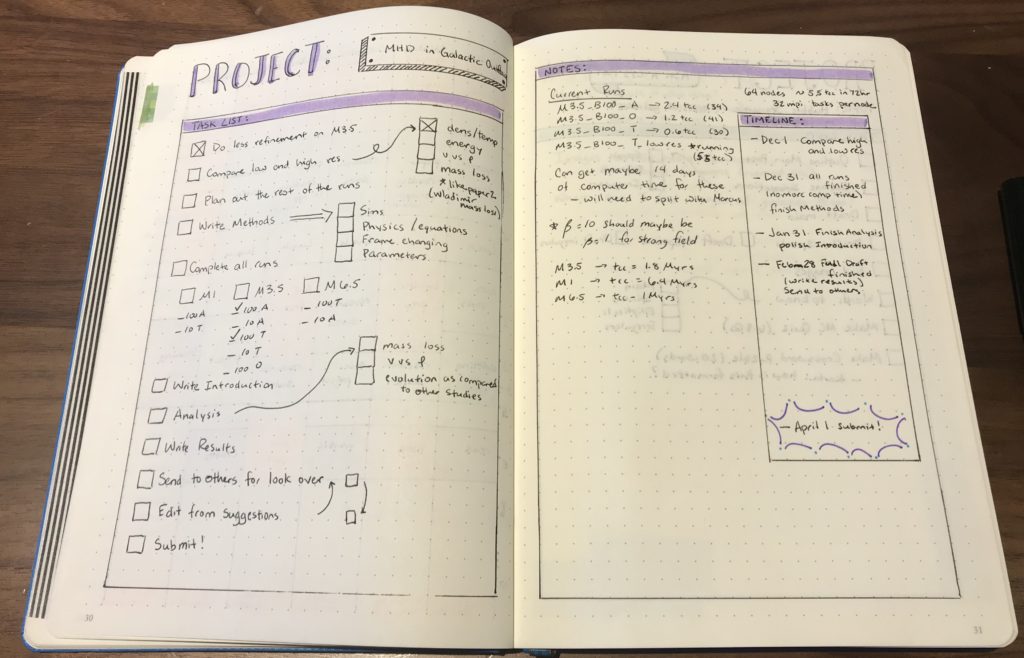 PROJECT:
MHD in Galactic
TASK LIST:
Do less refinement on M3.5
Compare low and high res.
dens/temp
energy
v vs ρ
mass loss
* like paper 2
(Wladimir
mass loss)
Plan out the rest of the runs
Write Methods
Sims
Physics/equations
Frame changing
Parameters
Complete all runs
M1 M3.5 M6.5
- 100 A ✓ 100 A - 100 T
- 10 T - 10 A - 10 A
✓ 100 T
- 10 T
- 100 O
mass loss
v vs ρ
evolution as compared
to other studies
Write Introduction
Analysis
Write Results
Send to others for look over
Edit from suggestions
Submit!
30
NOTES:
Current Runs
M3.5_B100_A → 2.4 tcc (34)
M3.5_B100_O → 1.2 tcc (41)
M3.5_B100_T → 0.6 tcc (30)
M3.5_B100_T_lowres *running
64 nodes ~ 5.5 tcc in 72hr
32 mpi tasks per node
Can get maybe 14 days
of computer time for these
- will need to split with Marcus
* β = 10 should maybe be
β = 1 for strong field
M3.5 → tcc = 1.8 Myrs
M1 → tcc = 6.4 Myrs
M6.5 → tcc - 1 Myrs
TIMELINE:
- Dec 1 Compare high
and low res
- Dec 31. all runs
finished
(no more comp time)
finish Methods
- Jan 31. Finish Analysis
polish Introduction
- Feb 28 Full Draft
finished
(write results)
Send to others
- April 1 submit!
31